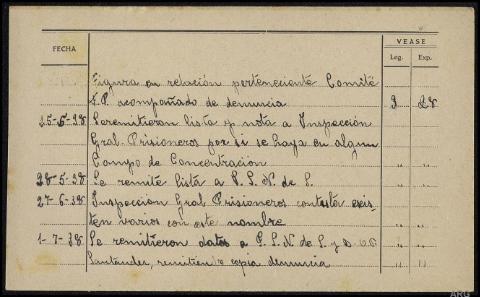 VEASE
FECHA Leg. Exp.
Figura en relación perteneciente Comité
F.P. acompañado de denuncia 9 28
25-5-38 Se remitieron lista y nota a Inspección
Gral. Prisioneros por si se haya en algun
Campo de Concentración " "
28-5-38 Se remite lista a P.S.N. de S. " "
27-6-38 Inspeccion Gral Prisioneros contesta exis-
ten varios con este nombre " "
1-7-38 Se remitieron datos a P.S.N. de S. y a
Santander, remitiendo copia denuncia " "